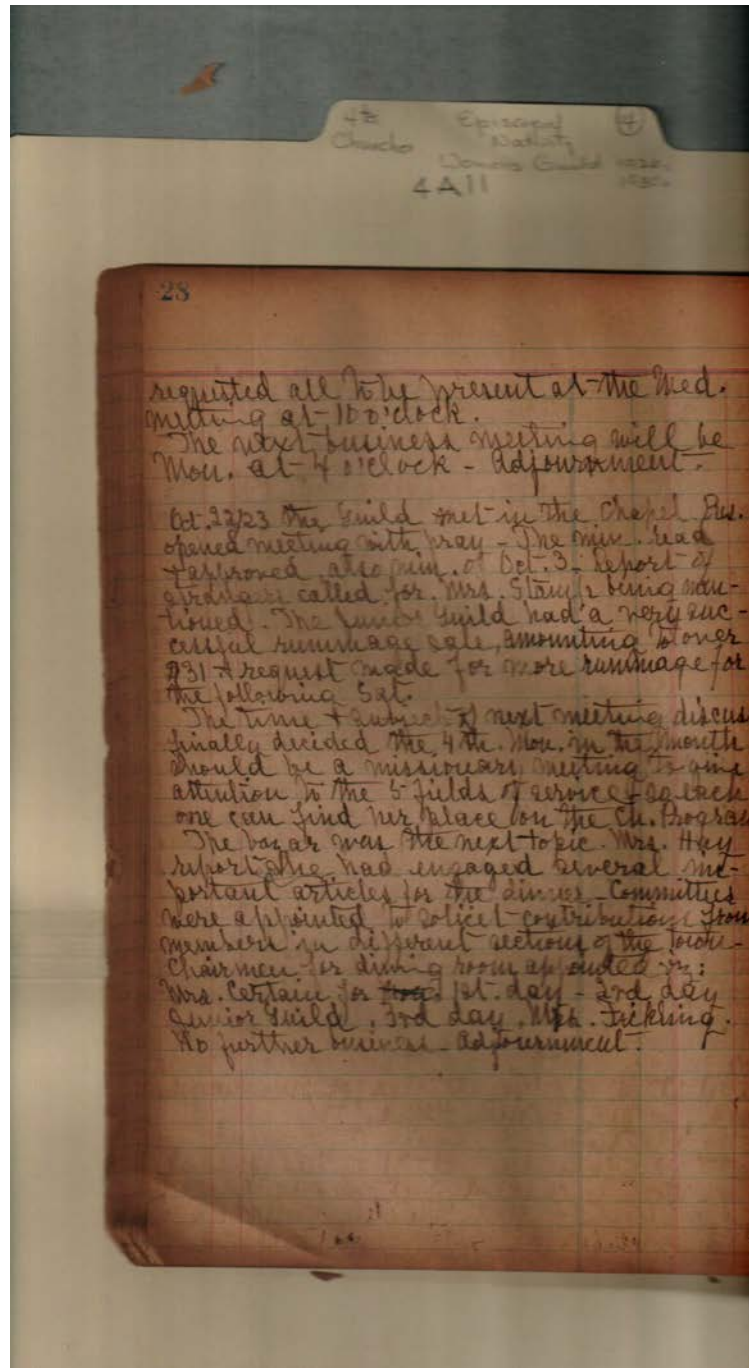 4 B Episcopal 4
Churches Nativity
Womens Guild 1920s
4A11 1930s
28
requested all to be present at the Wed.
meeting at 10 o'clock.
The next business meeting will be
Mon. at 4 o'clock - Adjournment.
Oct. 22/23 The Guild met in the Chapel. Pres.
opened meeting with pray - The min. read
+ approved, also min. of Oct. 3. Report of
strangers called for. Mrs. Stamps being men-
tioned. The Junior Guild had a very suc-
cessful rummage sale, amounting to over
$31 + request made for more rummage for
the following Sat.
The time + subject of next meeting discus
finally decided the 4th. Mon. in the month
should be a missionary meeting to give
attention to the 5 fields of service - so each
one can find her place on the Ch. Program
The bazar was the next topic. Mrs. Hay
report she had engaged several im-
portant articles for the dinner - Committees
were appointed to solicit contributions from
members in different sections of the town -
Chairmen for dining room appointed
Mrs. Certain for 1st. day - 2nd day
Junior Guild, 3rd day, Mrs. Fickling.
No further business - Adjournment.